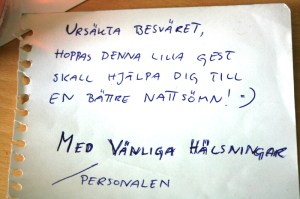 URSÄKTA BESVÄRET,
HOPPAS DENNA LILLA GEST
SKALL HJÄLPA DIG TILL
EN BÄTTRE NATTSÖMN! :-)
MED VÄNLIGA HÄLSNINGAR
/PERSONALEN